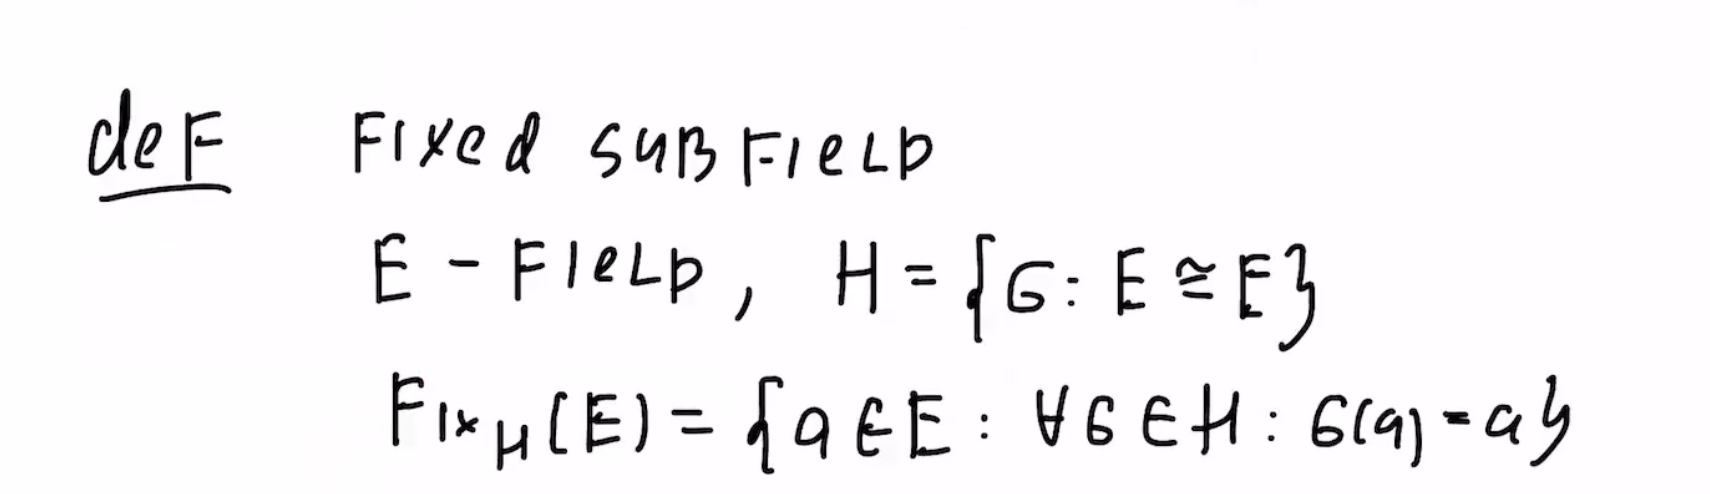 def Fixed subfield
E - field, H = {σ: E ≅ E}
Fix_H(E) = {a ∈ E : ∀σ ∈ H : σ(a) = a}